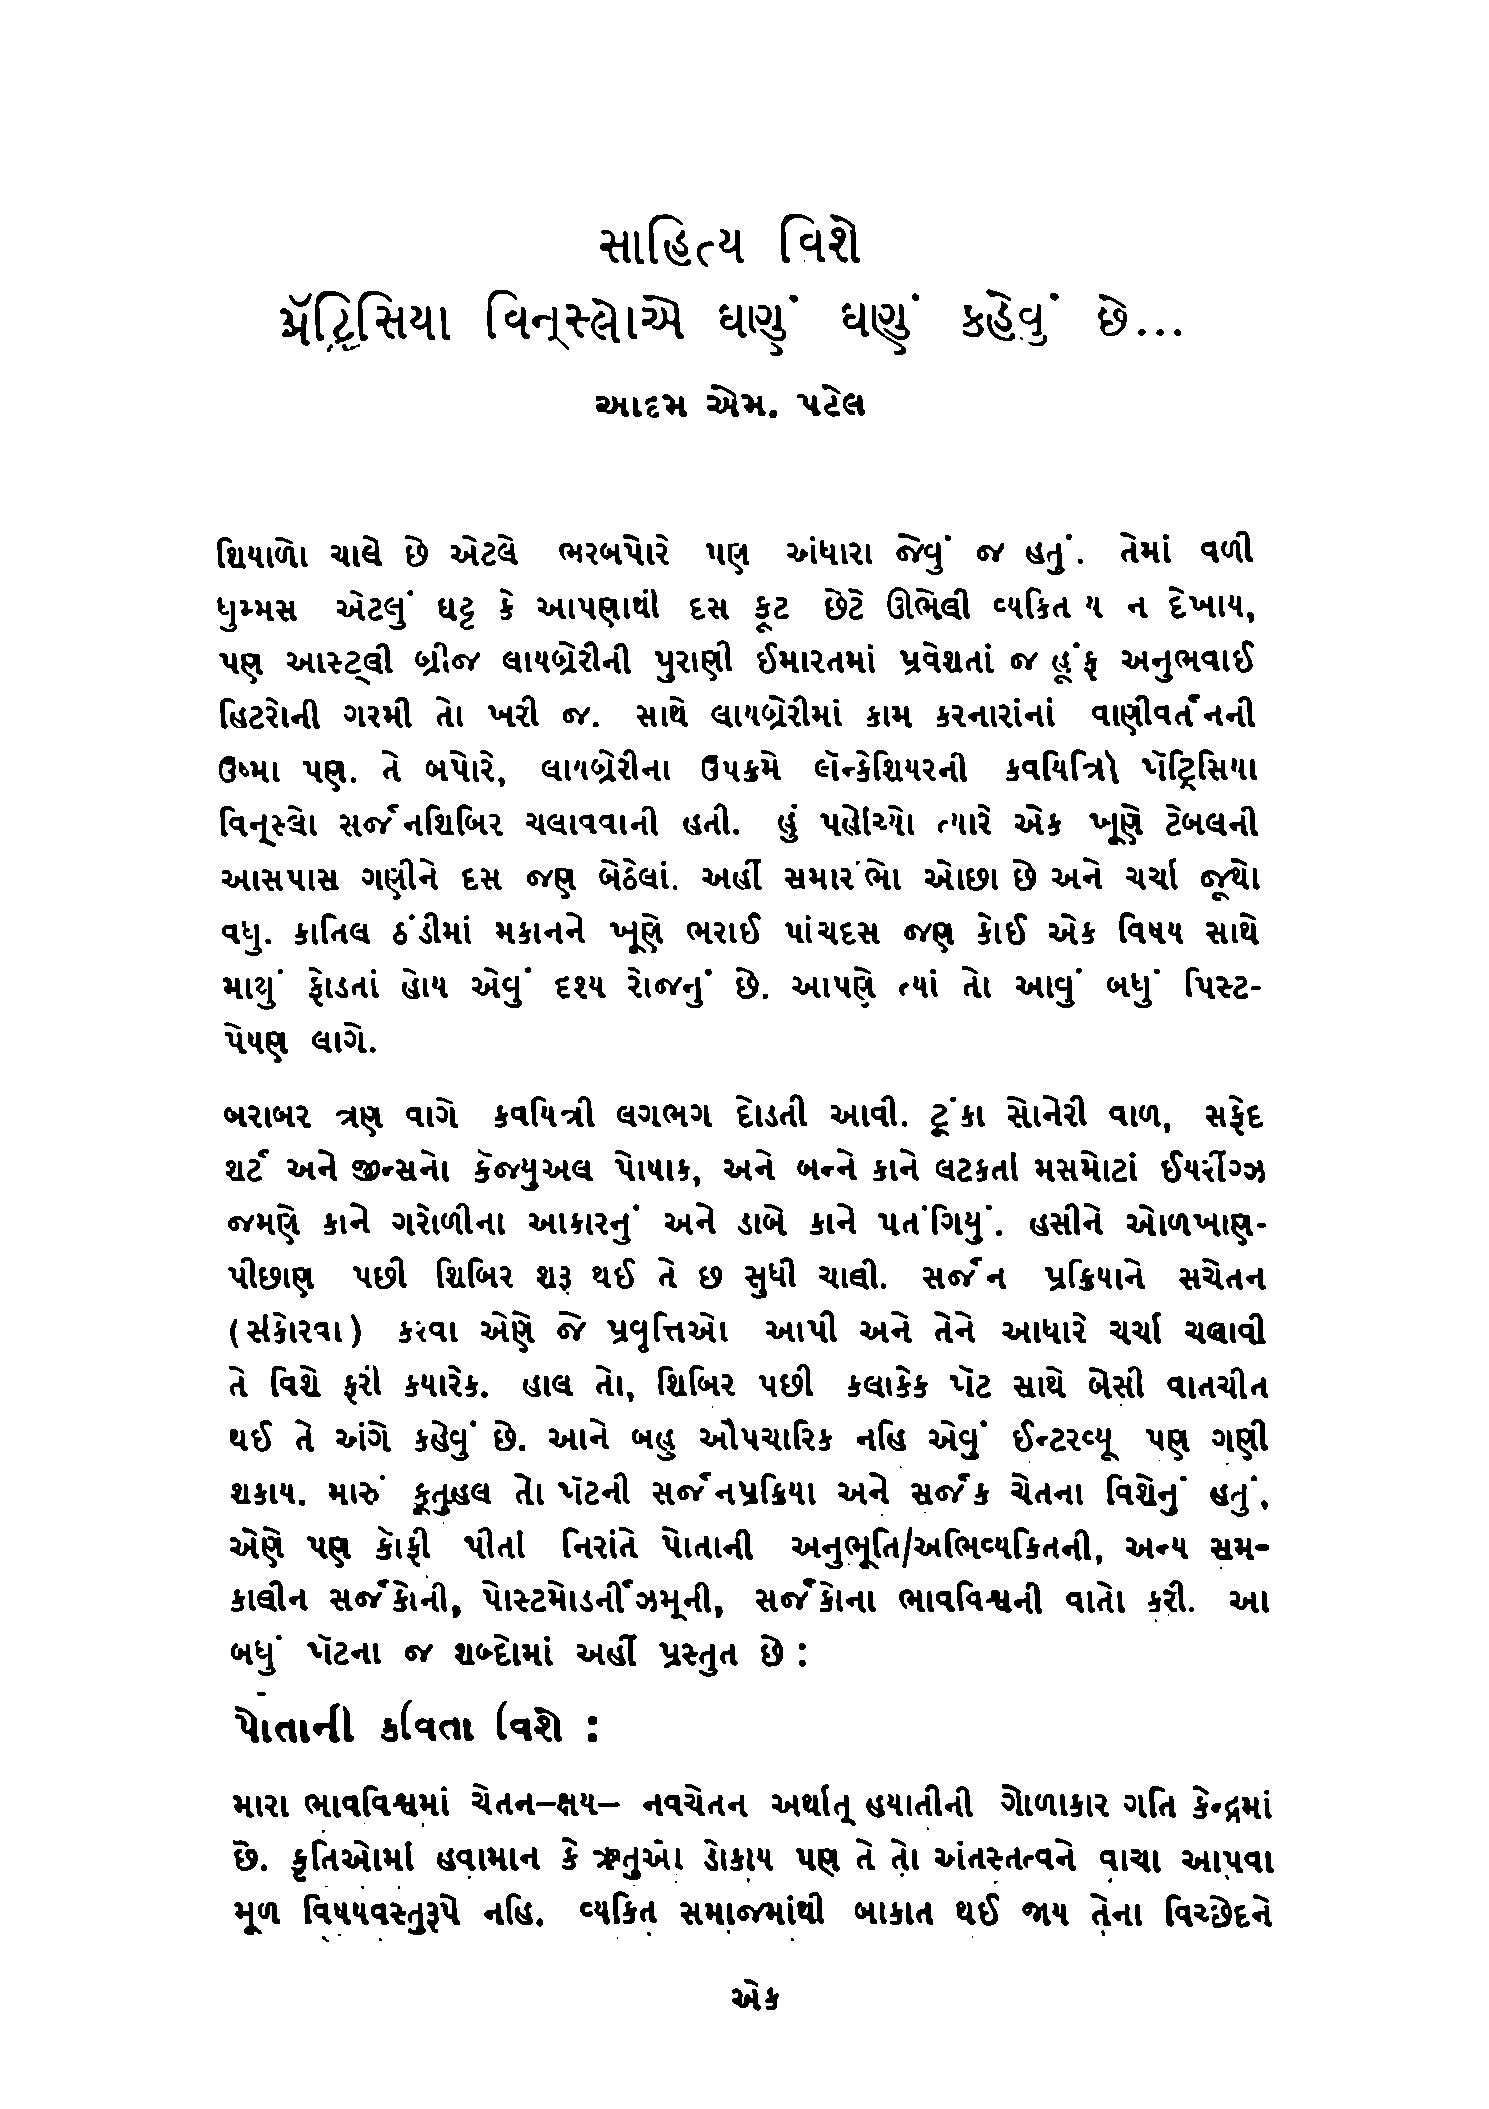 સાહિત્ય વિશે
પૅટ્રિસિયા વિન્સ્લોએ ઘણું ઘણું કહેવું છે...
આદમ એમ. પટેલ
શિયાળો ચાલે છે એટલે ભરબપોરે પણ અંધારા જેવું જ હતું. તેમાં વળી
ધુમ્મસ એટલું ઘટ્ટ કે આપણાથી દસ ફૂટ છેટે ઊભેલી વ્યકિત ય ન દેખાય,
પણ આસ્ટ્લી બ્રીજ લાયબ્રેરીની પુરાણી ઈમારતમાં પ્રવેશતાં જ હૂંફ અનુભવાઈ
હિટરોની ગરમી તો ખરી જ. સાથે લાયબ્રેરીમાં કામ કરનારાંનાં વાણીવર્તનની
ઉષ્મા પણ. તે બપોરે, લાયબ્રેરીના ઉપક્રમે લૅન્કેશિયરની કવયિત્રી પૅટ્રિસિયા
વિન્સ્લો સર્જનશિબિર ચલાવવાની હતી. હું પહોંચ્યો ત્યારે એક ખૂણે ટેબલની
આસપાસ ગણીને દસ જણ બેઠેલાં. અહીં સમારંભો ઓછા છે અને ચર્ચા જૂથો
વધુ. કાતિલ ઠંડીમાં મકાનને ખૂણે ભરાઈ પાંચદસ જણ કોઈ એક વિષય સાથે
માથું ફોડતાં હોય એવું દશ્ય રોજનું છે. આપણે ત્યાં તો આવું બધું પિસ્ટ-
પેષણ લાગે.
બરાબર ત્રણ વાગે કવયિત્રી લગભગ દોડતી આવી. ટૂંકા સોનેરી વાળ, સફેદ
શર્ટ અને જીન્સનો કૅજ્યુઅલ પોષાક, અને બન્ને કાને લટકતાં મસમોટાં ઈયરીંગ્ઝ
જમણે કાને ગરોળીના આકારનું અને ડાબે કાને પતંગિયું. હસીને ઓળખાણ-
પીછાણ પછી શિબિર શરૂ થઈ તે છ સુધી ચાલી. સર્જન પ્રક્રિયાને સચેતન
(સંકોરવા) કરવા એણે જે પ્રવૃત્તિઓ આપી અને તેને આધારે ચર્ચા ચલાવી
તે વિશે ફરી ક્યારેક. હાલ તો, શિબિર પછી કલાકેક પૅટ સાથે બેસી વાતચીત
થઈ તે અંગે કહેવું છે. આને બહુ ઔપચારિક નહિ એવું ઈન્ટરવ્યૂ પણ ગણી
શકાય. મારું કૂતુહલ તો પૅટની સર્જનપ્રક્રિયા અને સર્જક ચેતના વિશેનું હતું.
એણે પણ કૉફી પીતાં નિરાંતે પોતાની અનુભૂતિ/અભિવ્યકિતની, અન્ય સમ-
કાલીન સર્જકોની, પોસ્ટમોડર્નીઝમ્ની, સર્જકોના ભાવવિશ્વની વાતો કરી. આ
બધું પૅટના જ શબ્દોમાં અહીં પ્રસ્તુત છે :
પોતાની કવિતા વિશે :
મારા ભાવવિશ્વમાં ચેતન–ક્ષય– નવચેતન અર્થાત્ હયાતીની ગોળાકાર ગતિ કેન્દ્રમાં
છે. કૃતિઓમાં હવામાન કે ઋતુઓ ડોકાય પણ તે તો અંતસ્તત્વને વાચા આપવા
મૂળ વિષયવસ્તુરૂપે નહિ. વ્યકિત સમાજમાંથી બાકાત થઈ જાય તેના વિચ્છેદને
એક